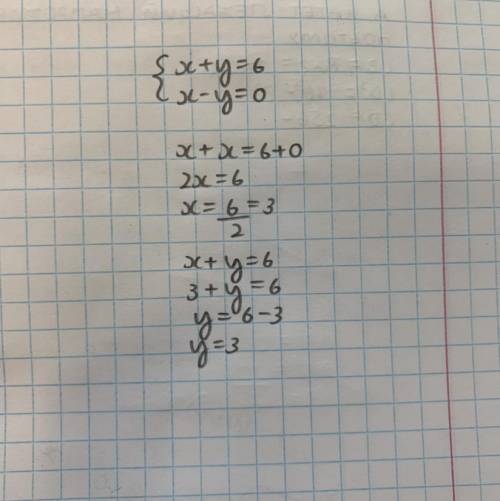 {x+y=6
x-y=0
x+x=6+0
2x=6
x=6/2=3
x+y=6
3+y=6
y=6-3
y=3